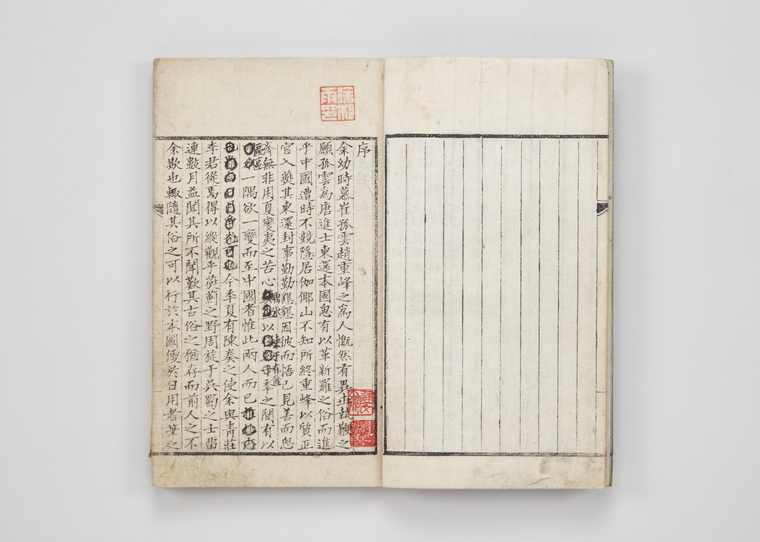 序
余幼時慕崔孤雲趙重峰之爲人慨然有異世執鞭之
願孤雲爲唐進士東還本國思有以革新羅之俗而進
乎中國遭時不競隱居伽倻山不知所終重峰以質正
官入燕其東還封事勤勤懇懇因彼而悟己見善而思
齊無非用夏變夷之苦心鴨水以東千有餘秊之間有以
區區一隅欲一變而至中國者惟此兩人而已
今秊夏有陳奏之使余與靑莊
李君從焉得以縱觀乎燕薊之野周旋于吳蜀之士留
連數月益聞其所不聞歎其古俗之猶存而前人之不
余欺也輒隨其俗之可以行於本國便於日用者筆之